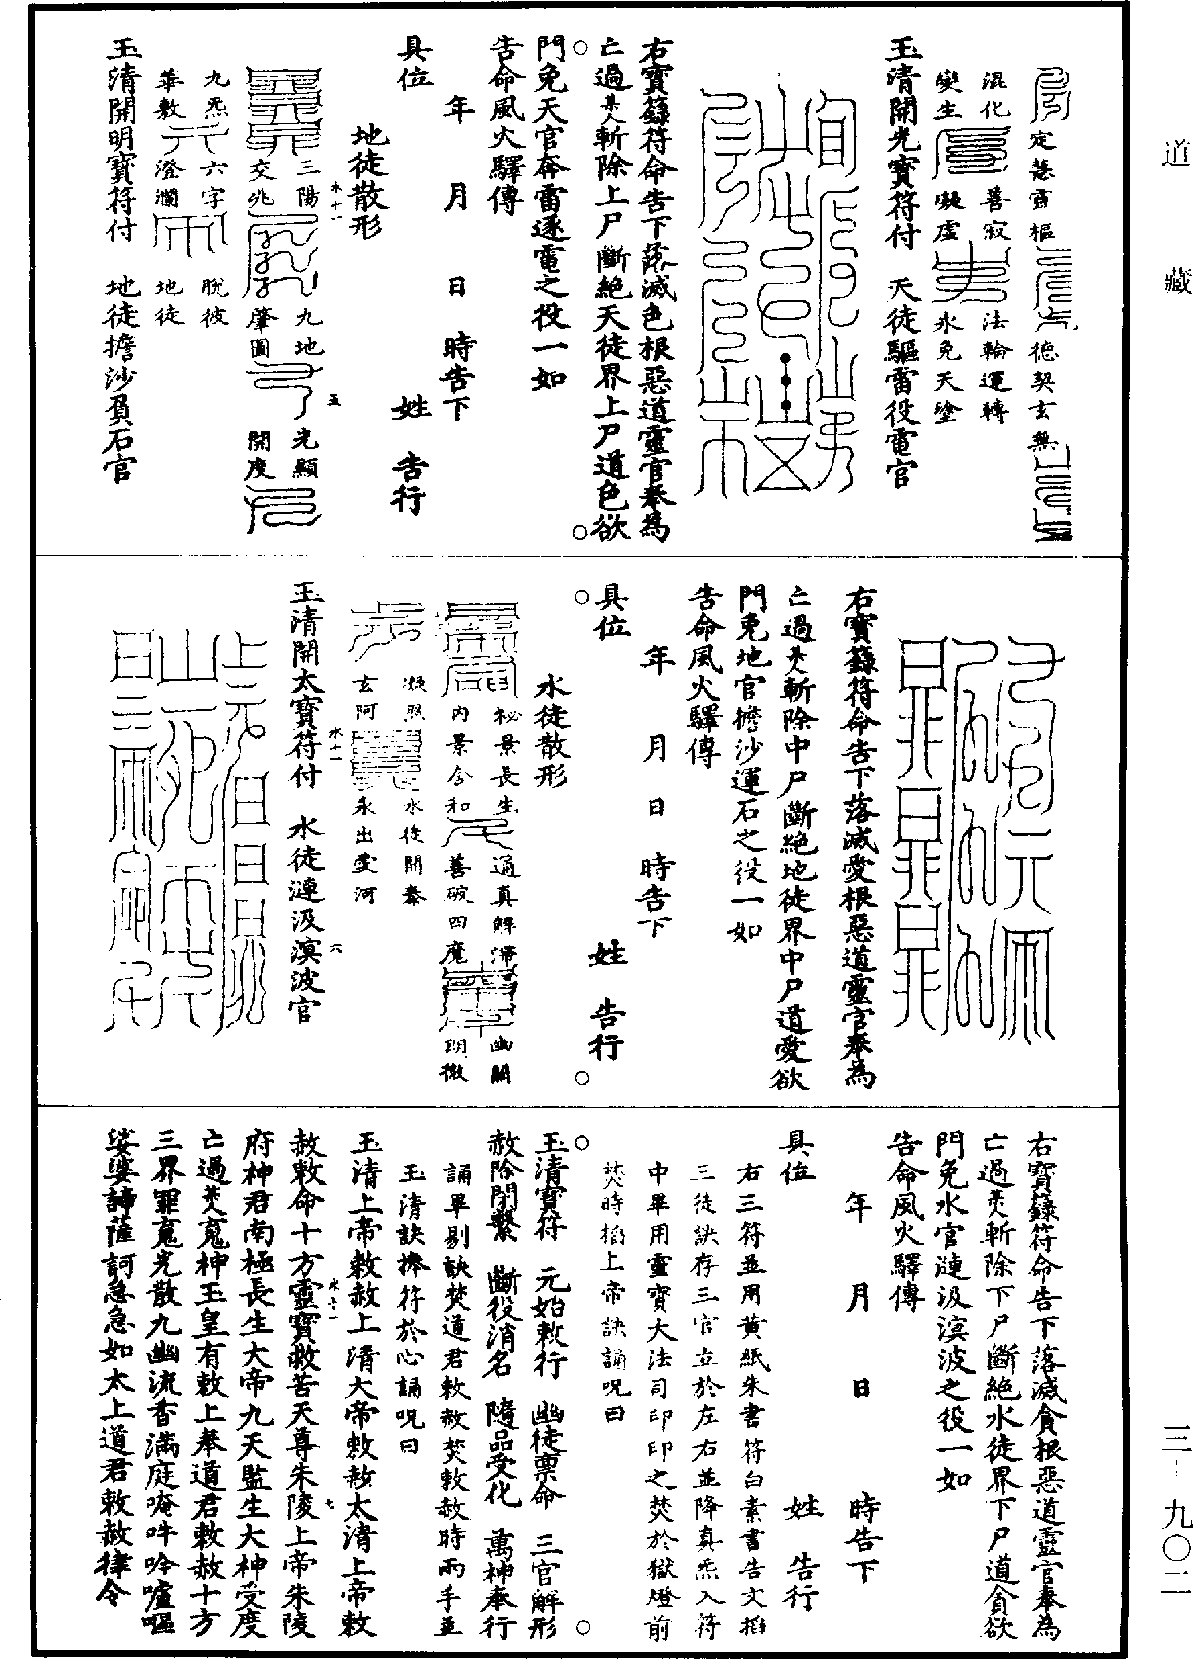 道藏
定慧靈樞 德契玄無
混化 善寂 法輪運轉
變生 凝虛 永免天塗
玉清開光寶符付 天徒驅雷役電官
右寶籙符命告下落滅色根惡道靈官奉為
亡過某人斬除上尸斷絕天徒界上尸道色欲
門免天官奔雷逐電之役一如
告命風火驛傳
年 月 日 時告下
具位 姓 告行
地徒散形
三陽 九地 光顯
交兆 肇圖 開度
九炁 六字 脫彼
華敷 澄瀾 地徒
玉清開明寶符付 地徒擔沙負石官
右寶籙符命告下落滅愛根惡道靈官奉為
亡過某人斬除中尸斷絕地徒界中尸道愛欲
門免地官擔沙運石之役一如
告命風火驛傳
年 月 日 時告下
具位 姓 告行
水徒散形
秘景長生 通真解滯 幽關
內景含和 善破四魔 明徹
凝照 水徒開泰
玄阿 永出愛河
玉清開太寶符付 水徒漣汲溟波官
右寶籙符命告下落滅貪根惡道靈官奉為
亡過某人斬除下尸斷絕水徒界下尸道貪欲
門免水官漣汲溟波之役一如
告命風火驛傳
年 月 日 時告下
具位 姓 告行
右三符並用黃紙朱書符白素書告文掐
三徒訣存三官立於左右並降真炁入符
中畢用靈寶大法司印印之焚於獄燈前
焚時掐上帝訣誦呪曰
玉清寶符 元始敕行 幽徒稟命 三官解形
赦除閉繫 斷役消名 隨品受化 萬神奉行
誦畢剔訣焚道君敕赦焚敕赦時兩手並
玉清訣捧符於心誦呪曰
玉清上帝敕赦上清大帝敕赦太清上帝敕
赦敕命十方靈寶救苦天尊朱陵上帝朱陵
府神君南極長生大帝九天監生大神受度
亡過某人魂神玉皇有敕上奉道君敕赦十方
三界罪魂光散九幽流香滿庭唵吽唫嚧嘔
娑婆諦薩訶急急如太上道君敕赦律令
三-九〇二